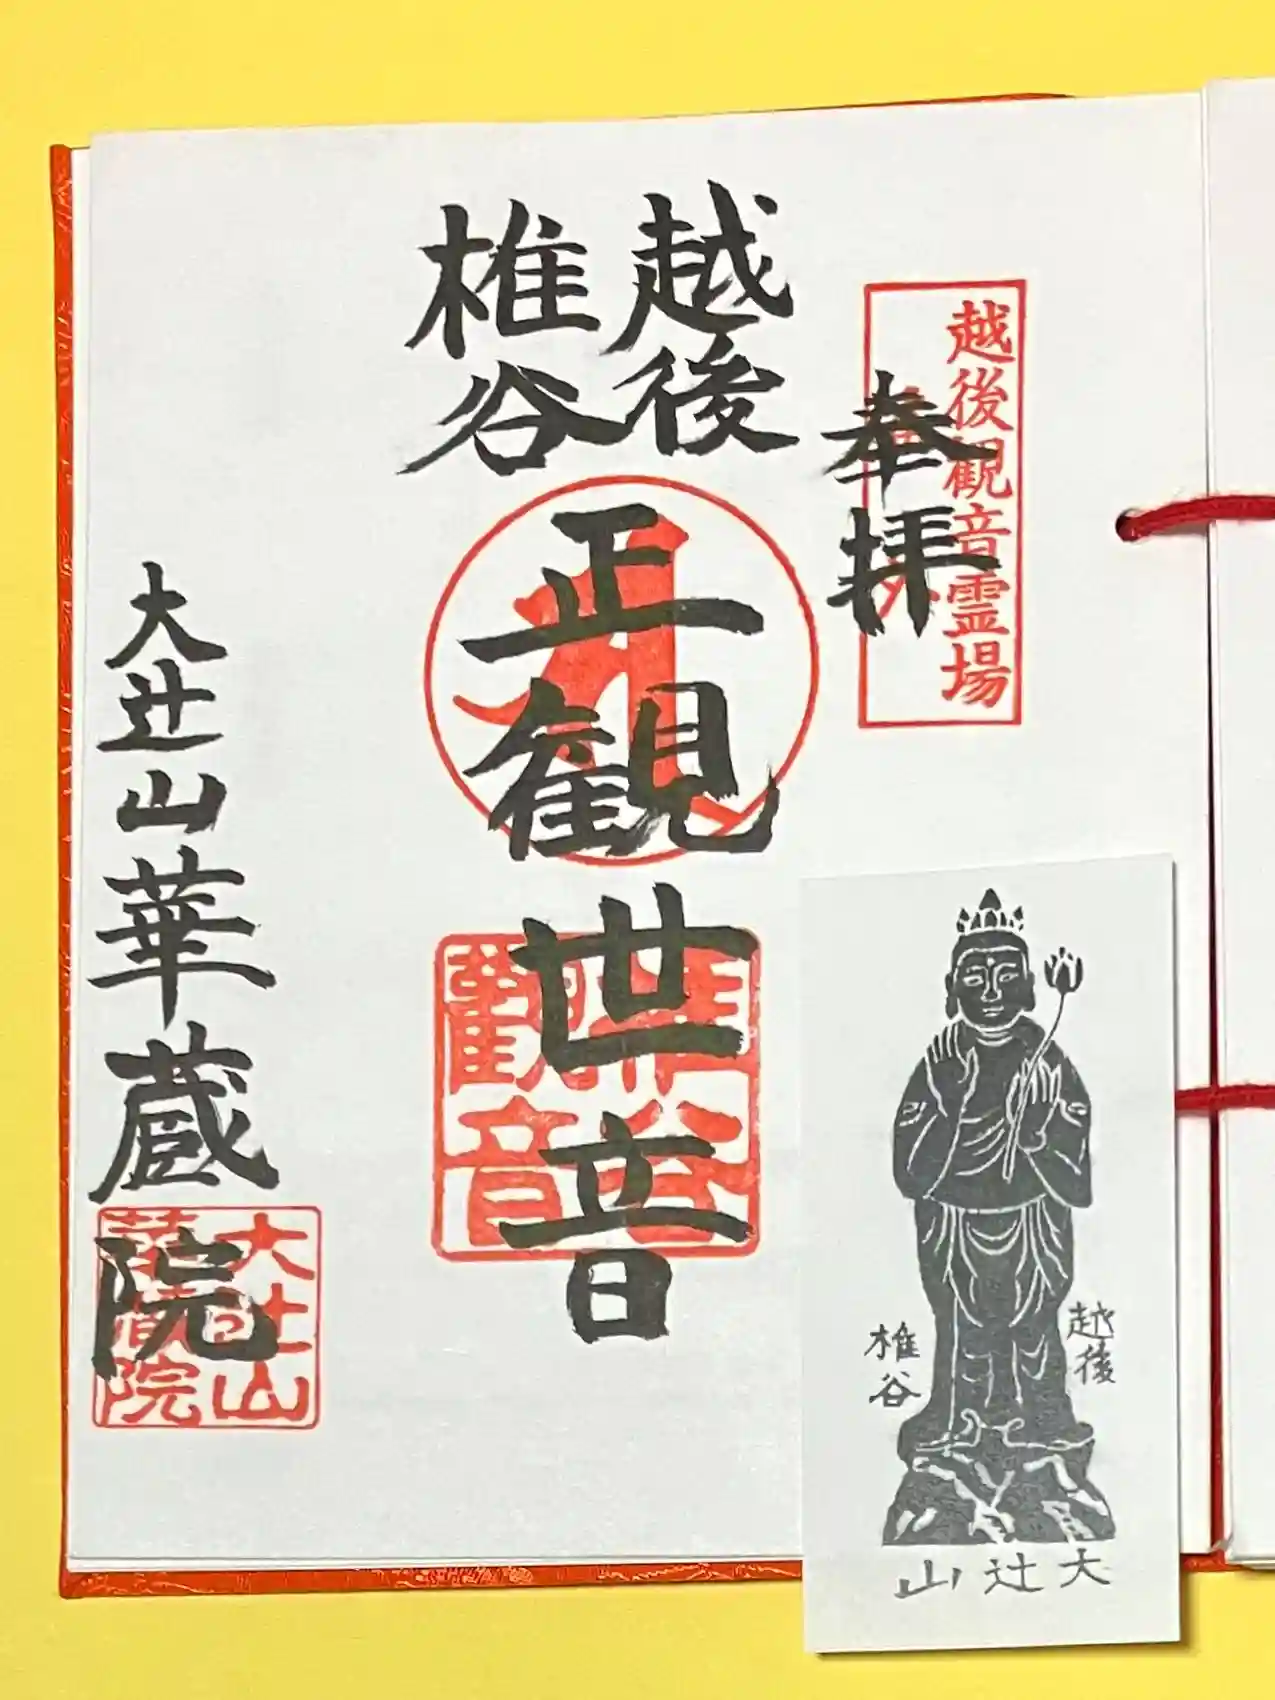 越後観音霊場
番外
奉拝
越後
椎谷
正観世音
椎谷
觀音
大辻山華蔵院
大辻山
華蔵院
越後
椎谷
大辻山